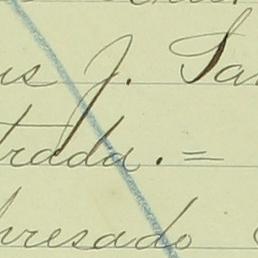 us J. Sa
trada. =
presado